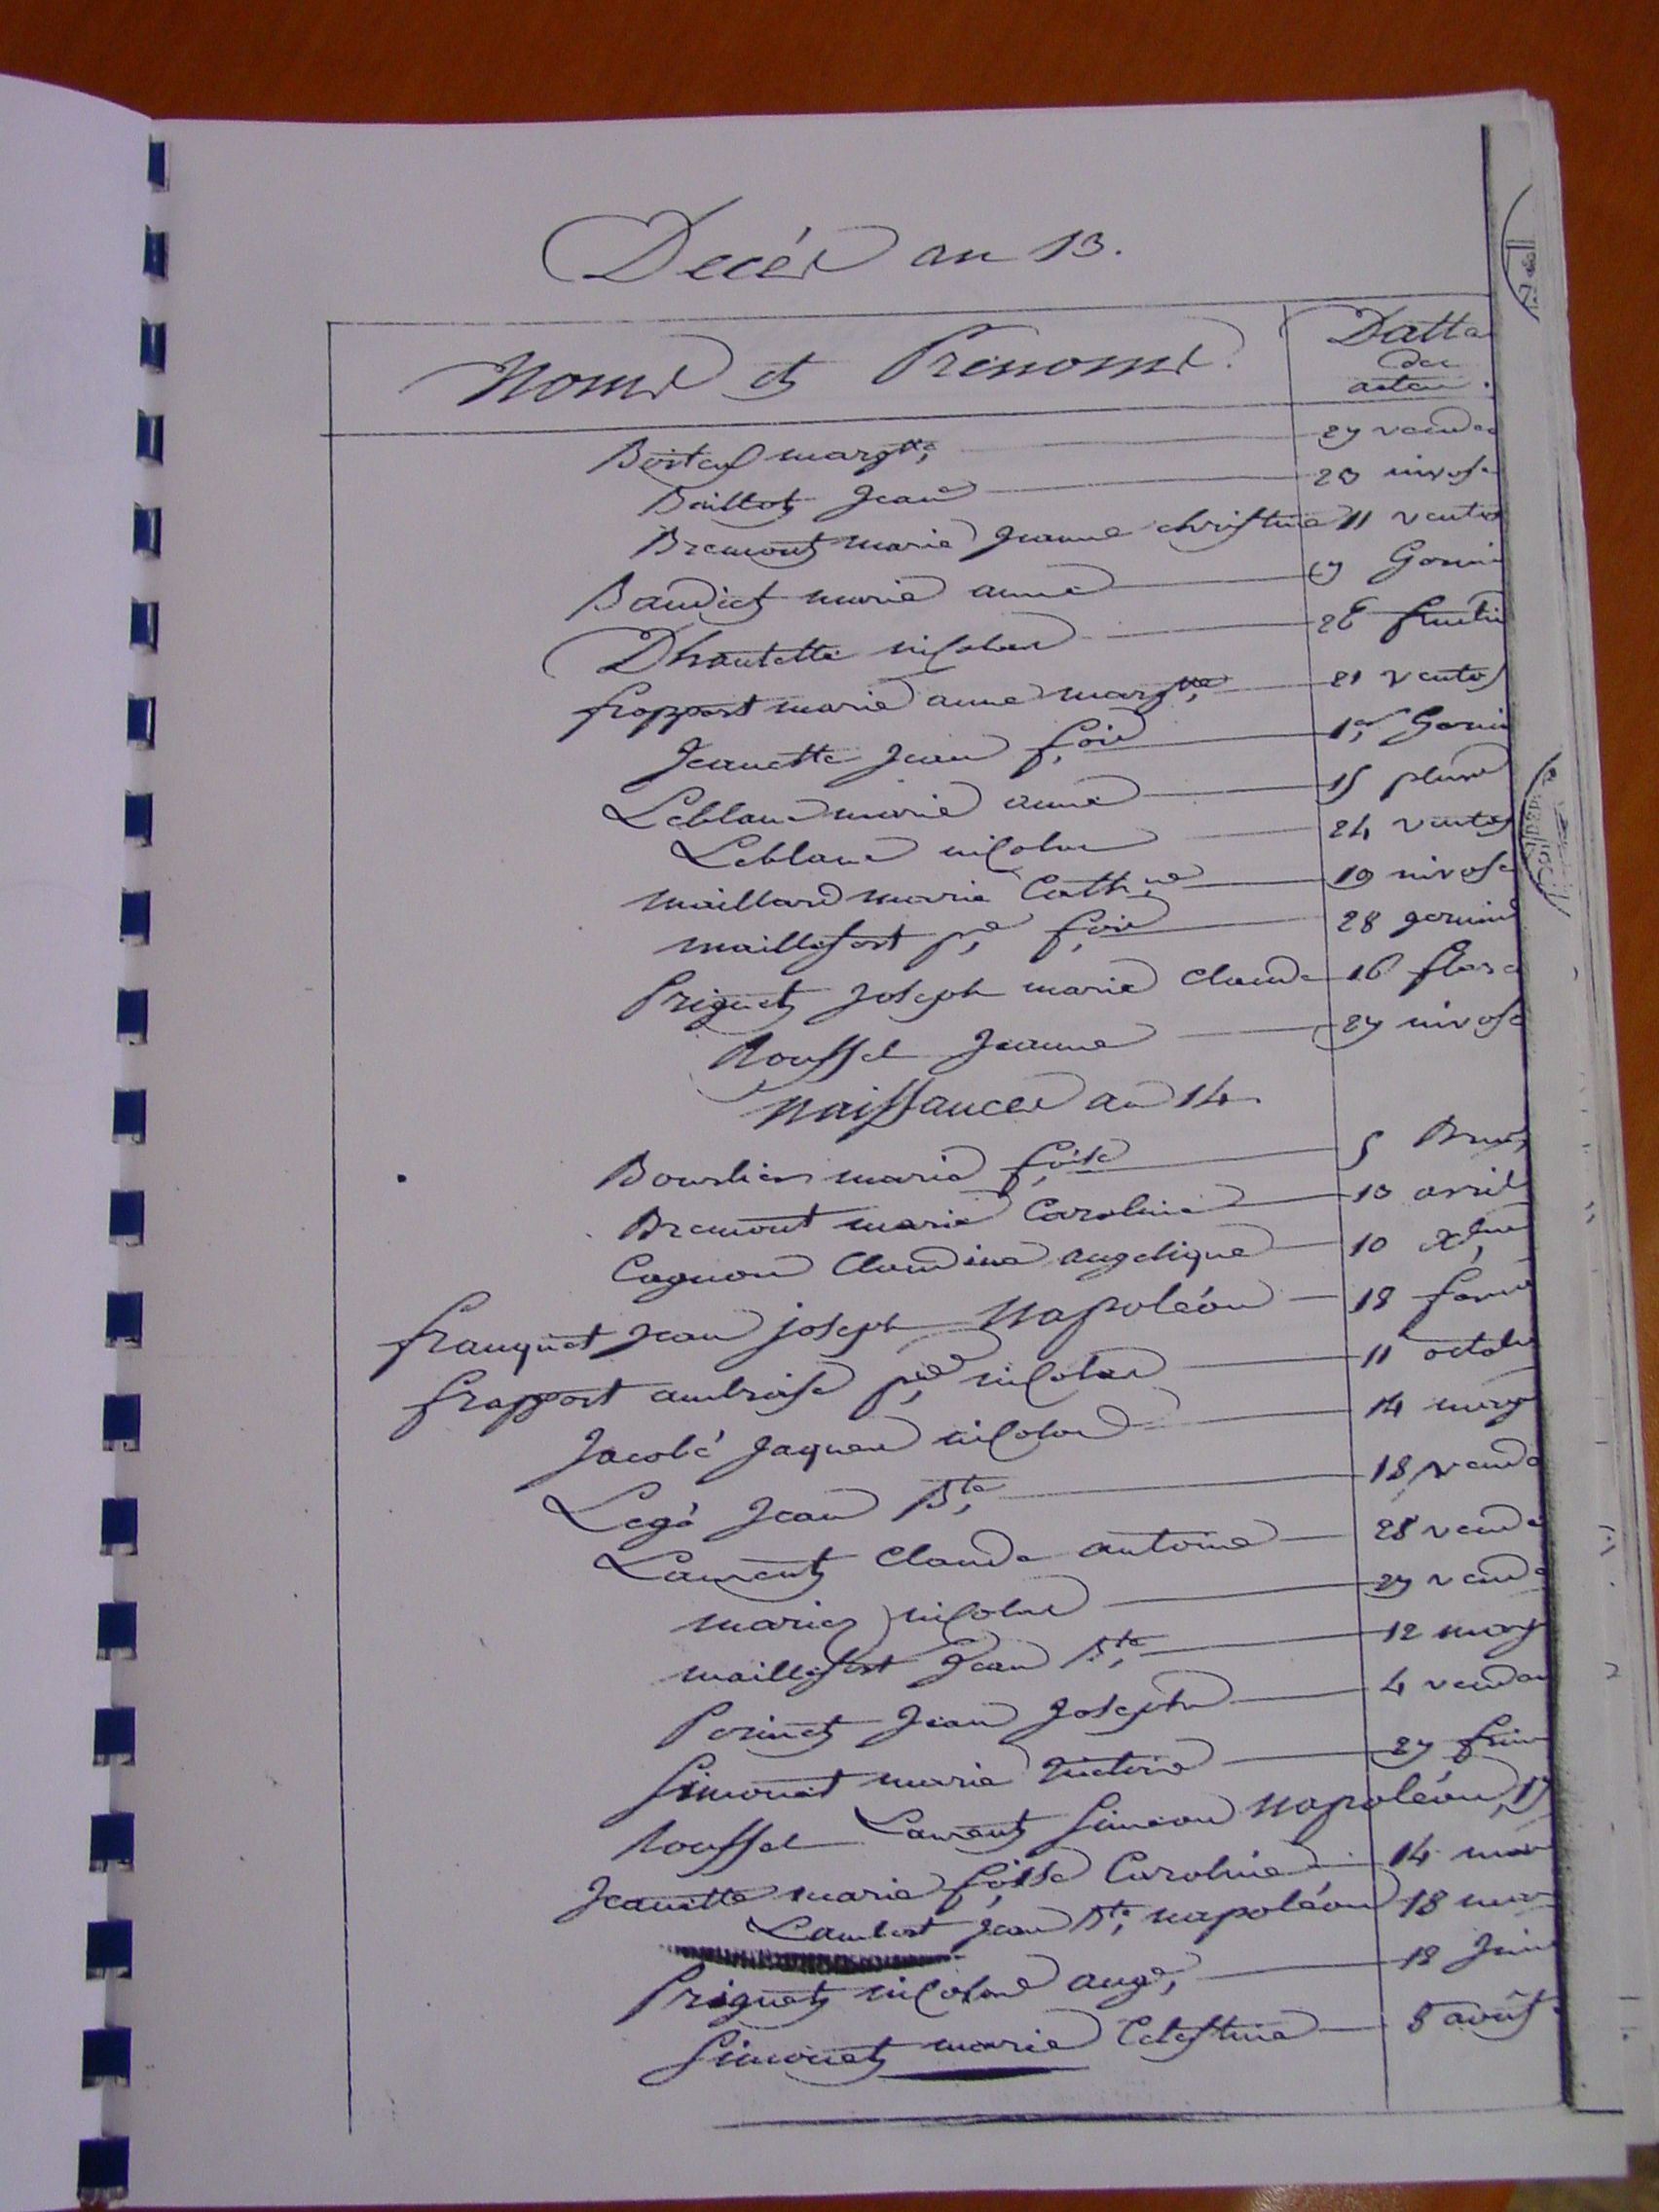 Decés an 13.
Noms et Prenoms.
Datte
des
actes.
margtte 27 vendé
Baillot Jean 23 nivose
Bremont marie Jeanne christine 11 vento
Baudiet marie anne 7 Germi
Dhautelle nicolas 26 fructi
frappart marie anne margtte 21 ventos
Jeanette Jean fois 1er Germi
Leblanc marie anne 15 pluvi
Leblanc nicolas 24 ventos
maillard marie Cathne 19 nivose
maillefert pre fois 28 germin
Priguet Joseph marie Claude 16 flore
Roussel Jeanne 27 nivose
Naissances an 14
Bourlier marie foise 5 Brum
Bremont marie Caroline 13 avril
Cagnon Claudine angelique 10 xbre
franquet Jean joseph Napoléon 18 fevri
frappart ambroise pre nicolas 11 octobr
Jacobé Jaques nicolas 14 may
Legé Jean Bte 18 vendé
Laurent Claude antoine 28 vendé
nicolas 29 vendé
maillefert Jean Bte 12 may
Perinet Jean Joseph 4 vendem
Simonet marie Victoire 27 frim
Roussel Laurent Simeon Napoléon, 17
Jeanette marie foise Caroline 14 mar
Lambert Jean Bte napoléon 18 mar
Priguet nicolas auge, 18 Juin
Simonet marie Celestine 5 août